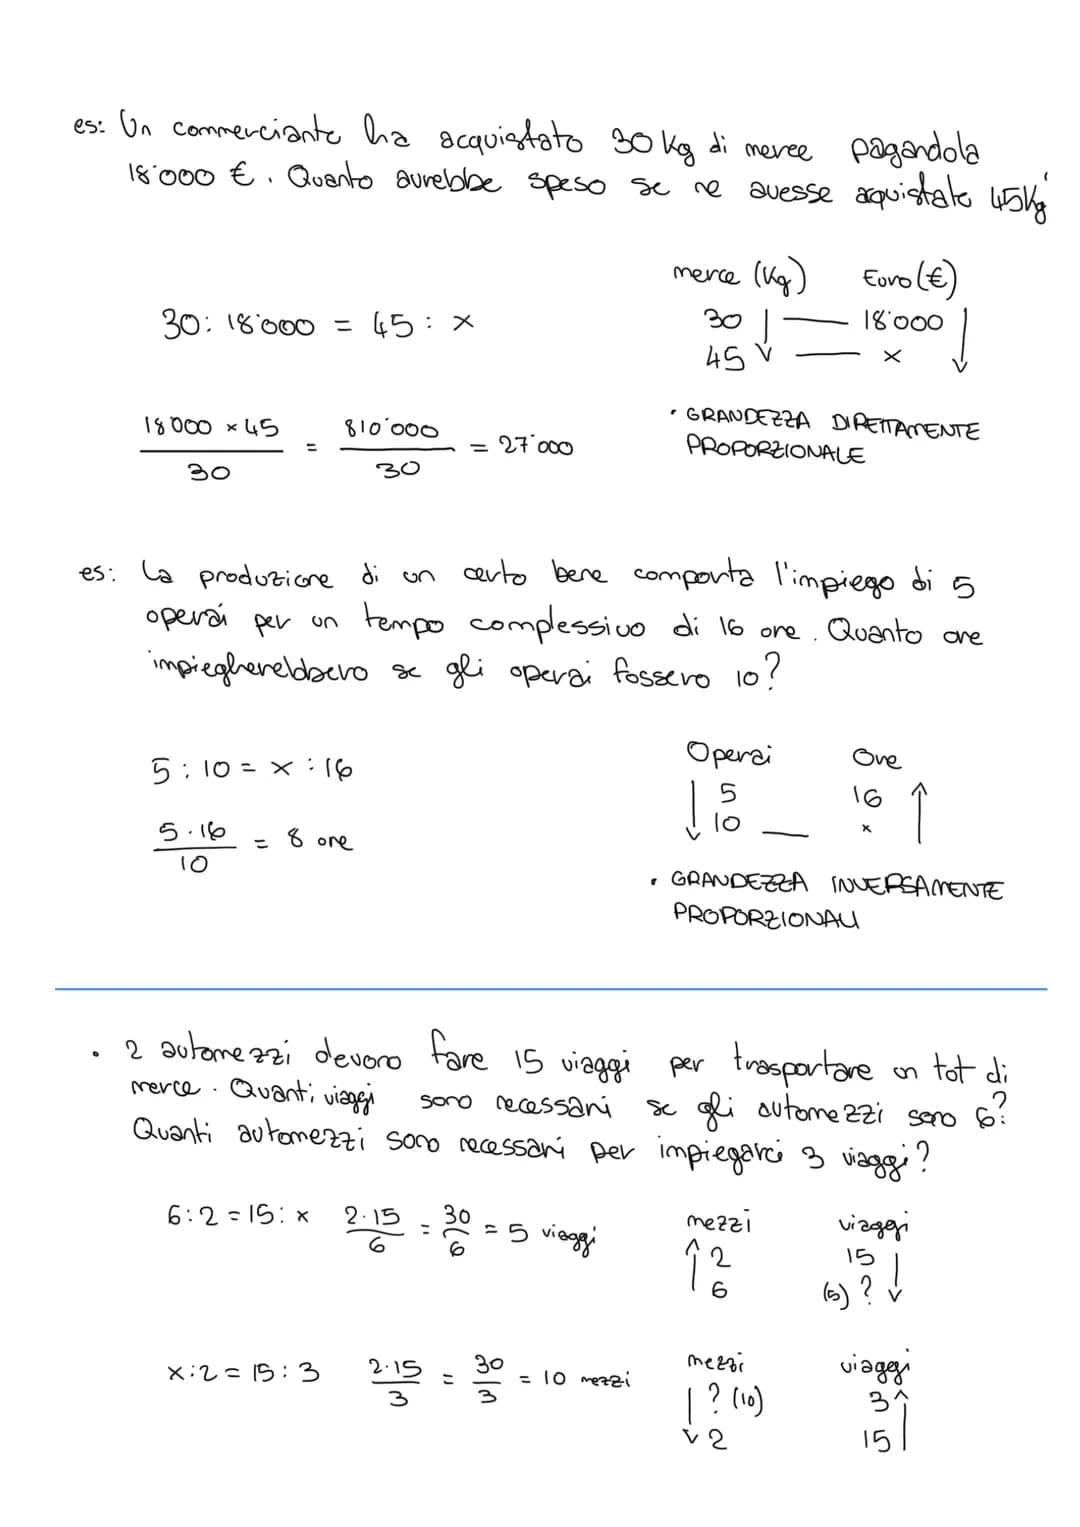 es: Un commerciante ha acquistato 30 Kg di merce pagandola
18'000 €. Quanto avrebbe speso se ne avesse aquistate 45Kg
merce (Kg) Euro (€)
30 : 18'000 = 45 : x
30 — 18'000
45 — x
18'000 × 45 / 30 = 810'000 / 30 = 27'000
• GRANDEZZA DIRETTAMENTE
PROPORZIONALE
es: La produzione di un certo bene comporta l'impiego di 5
operai per un tempo complessivo di 16 ore. Quanto ore
impiegherebbero se gli operai fossero 10?
Operai Ore
5 : 10 = x : 16
5 16
10 — x
5·16 / 10 = 8 ore
• GRANDEZZA INVERSAMENTE
PROPORZIONALI
• 2 automezzi devono fare 15 viaggi per trasportare un tot di
merce. Quanti viaggi sono necessari se gli automezzi sono 6?
Quanti automezzi sono necessari per impiegarci 3 viaggi?
6 : 2 = 15 : x 2·15 / 6 = 30 / 6 = 5 viaggi
mezzi viaggi
2 15
6 (5) ?
x : 2 = 15 : 3 2·15 / 3 = 30 / 3 = 10 mezzi
mezzi viaggi
? (10) 3
2 15